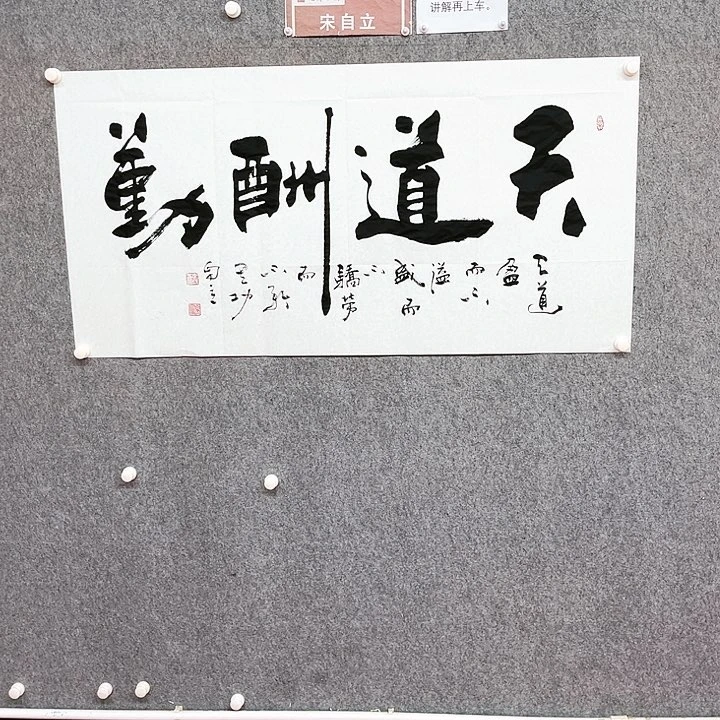 宋自立
讲解再上车。
天道酬勤
天道
盈
而不
溢
盛而
不
驕勞
而
不矜
其功
自立